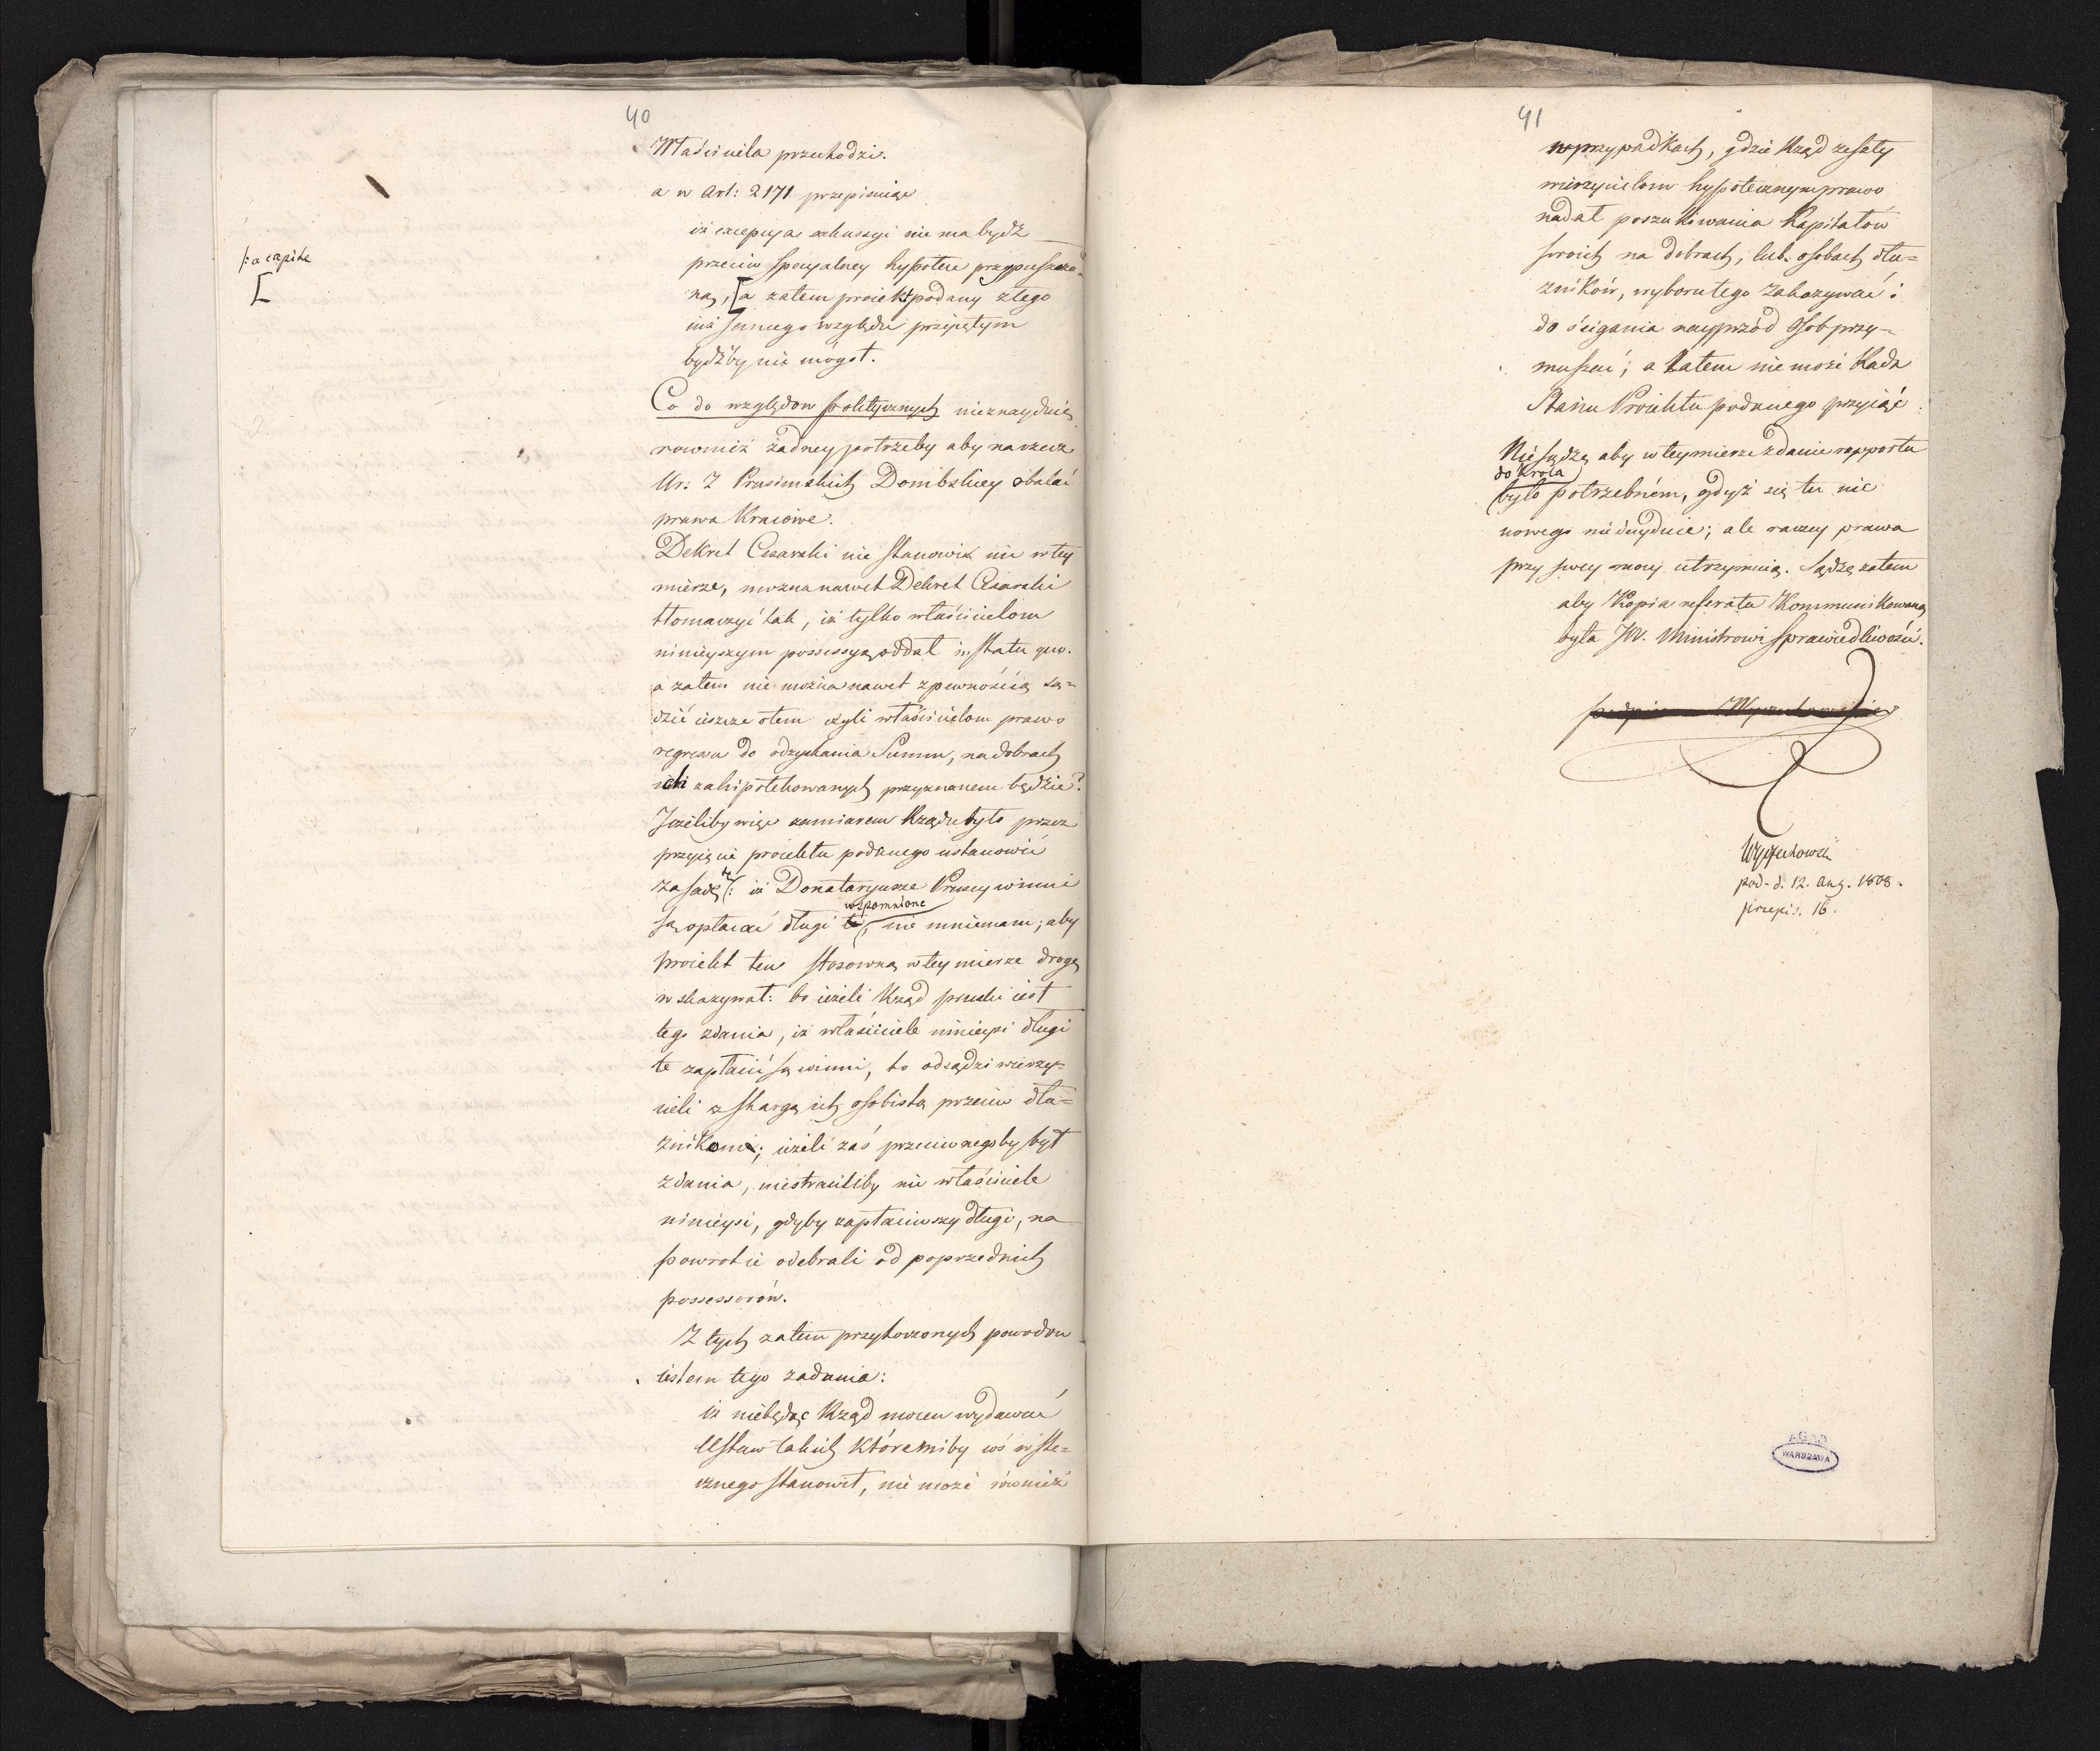 40
Właściciela przechodzi.
a w Art: 2171 przepisuiąc
iż excepcya exkussyi nie ma bydź
przeciw specyalney hypotece przypuszczo=
ną, [a zatem proiekt podany z tego
iuż samego względu przyiętym
bydźby nie mógł.
/: a capite
[
Co do względow politycznych nieznayduię
rownież żadney potrzeby aby na rzecz
Ur: Z Prusimskich Dombskiey obalać
prawa Kraiowe.
Dekret Cesarski nie stanowił nic w tey
mierze, można nawet Dekret Cesarski
tłomaczyć tak, iż tylko właścicielom
ninieyszym possessyą oddał in statu quo.
a zatem nie można nawet z pewnością są=
dzić ieszcze o tem czyli właścicielom prawo
regressu do odzyskania Summ, na dobrach
ich zahipotekowanych przyznanem będzie?
Jeżeliby więc zamiarem Rządu było przez
przyięcie proiektu podanego ustanowić
zasadę /: iż Donataryusze Pruscy winni
wspomnione
są opłacać długi te, nie mniemam, aby
proiekt ten stosowną w tey mierze drogę
wskazywał: bo ieżeli Rząd pruski iest
tego zdania, iż właściciele ninieysi długi
te zapłacić są winni, to odsądzi wierzy=
cieli z skargą ich osobistą przeciw dłu=
żnikom; ieżeli zaś przeciwnegoby był
zdania, niestraciliby nic właściciele
ninieysi, gdyby zapłaciwszy długi, na
powrot ie odebrali od poprzednich
possessorów.
Z tych zatem przytoczonych powodow
iestem tego zadania:
iż niebędąc Rząd mocen wydawać
Ustaw takich któremiby coś wste=
cznego stanowił, nie może również
41
w przypadkach, gdzie Rząd zeszły
wierzycielom hypotecznym prawo
nadał poszukiwania Kapitałow
swoich na dobrach, lub osobach dłu=
żników, wyboru tego zakazywać i
do ścigania nayprzód osob przy=
muszać; a zatem nie może Rada
Stanu Proiektu podanego przyiąć.
Nie sądzę aby w tey mierze zdanie rapportu
do Króla
było potrzebném, gdyż się tu nic
nowego nie znayduie; ale raczey prawa
przy swey mocy utrzymuią. Sądzę zatem
aby Kopia referatu Kommunikowaną
była JW. Ministrowi Sprawiedliwości.
Wyczechowski
pod. d. 12. Aug. 1808.
przepis. 16.
AGAD
WARSZAWA